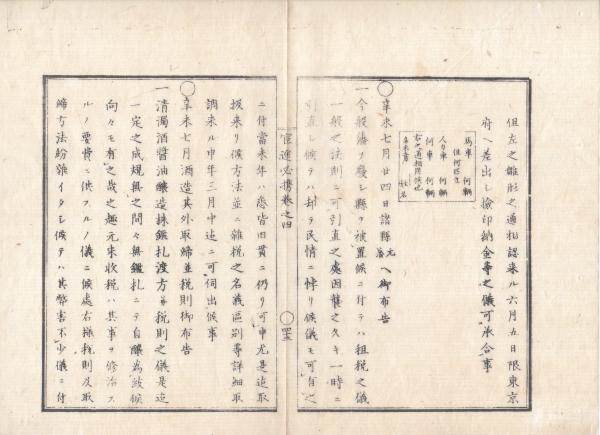 但左之雛形之通相認来ル六月五日限東京
府ヘ差出シ撿印納金等之儀可承合事
馬車 何輌
但何匹立
人力車 何輌
何車 何輌
右之通相所持也
辛未 月 姓名
○辛未七月廿四日諸縣元藩ヘ御布告
一今般藩ヲ廢シ縣ヲ被置候ニ付テハ租税之儀
一般之法則ニ可引直之處因襲之久キ一時ニ
引直シ候テハ却テ民情ニ悖リ候儀モ可有之
官途必携巻之四
四十五
ニ付當未年ハ悉皆旧貫ニ仍リ可申尤是迠取
扱来リ候方法並ニ雜税之名義區別等詳細取
調来ル申年三月中迠ニ可伺出候事
○辛未七月酒造其外取締並税則御布告
一清濁酒醬油釀造鑑札渡方並税則之儀是迠
一定之成規無之間々無鑑札ニテ自釀為致候
向々モ有之哉之趣元来收税ハ其事ヲ修治ス
ルノ要費ニ供フルノ儀ニ候處右様税則及取
締方法紛雜イタシ候テハ其弊害不少儀ニ付